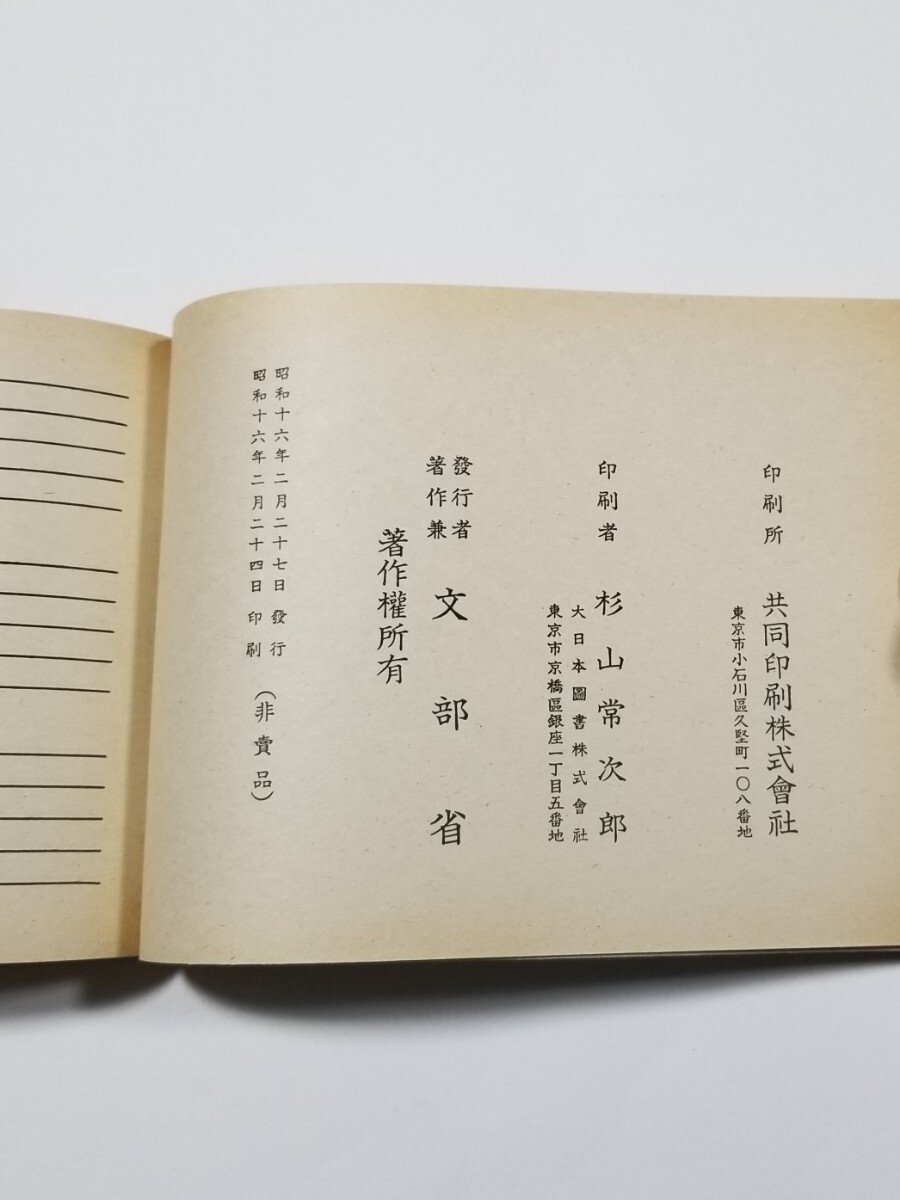 昭和十六年二月二十四日印刷
昭和十六年二月二十七日發行
(非賣品)
著作權所有
著作兼
發行者
文部省
印刷者
東京市京橋區銀座一丁目五番地
大日本圖書株式會社
杉山常次郎
印刷所
東京市小石川區久堅町一〇八番地
共同印刷株式會社